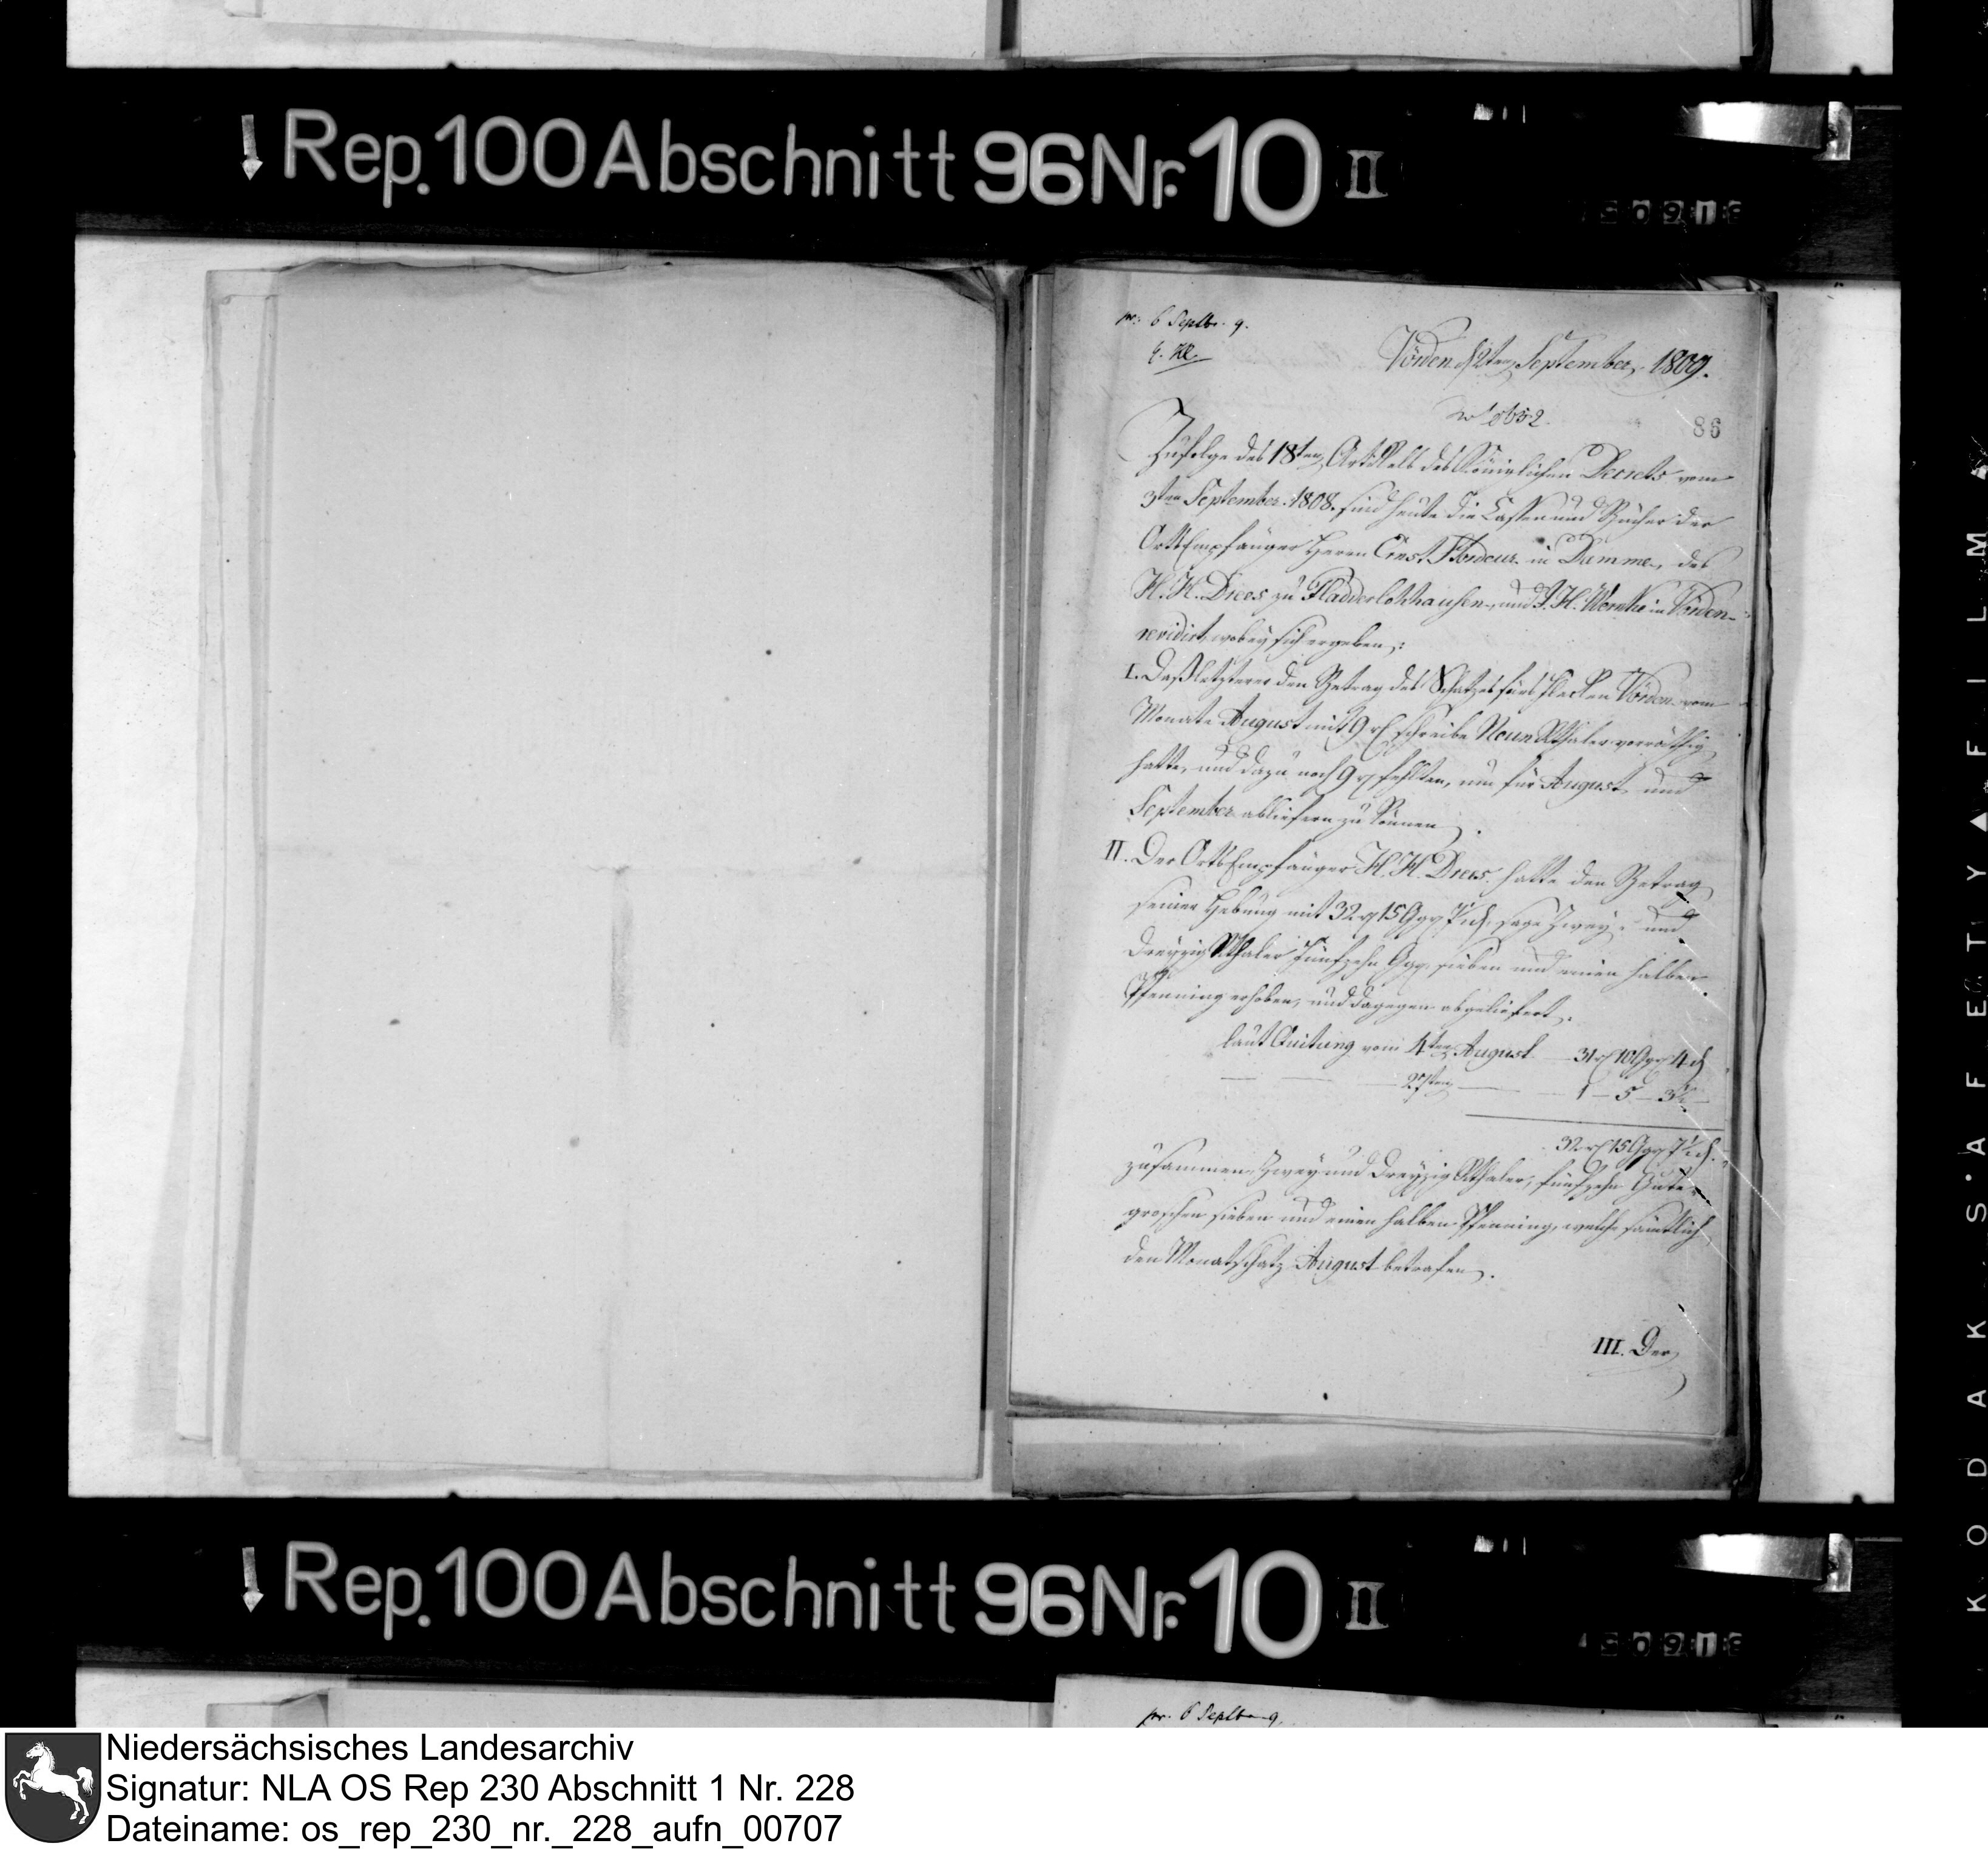 Rep. 100 Abschnitt 96 Nr. 10 II
pr: 6 Septbr. 9.
Vörden d 2ten September. 1809.
86
Zufolge des 18ten Artikels des Königlichen Decrets vom
3ten September 1808. sind heute die Cassen und Bücher der
Ortsempfänger Herrn Ernst in Damme, des
H. H. Drees zu Fladderlohhausen, und J. H. Wernke in Vörden
revidirt, wobey sich ergeben:
I. Daß letzterer den Betrag des Schatzes fürs Flecken Vörden vom
Monate August mit 9 rt schreibe Neun Rthaler vorräthig
hatte, und dazu noch 9 rt fehlten, um für August und
September abliefern zu können.
II. Der Ortsempfänger H. H. Drees. hatte den Betrag
seiner Hebung mit 32 rt 15 Ggr 7½ d, sage Zwey und
Dreyzig Rthaler Fünfzehn Ggr. sieben und einen halben
Pfenning erhoben, und dagegen abgeliefert,
laut Quitung vom 4ten August — 31 rt 10 Ggr 4 d
— — — 1 — 5 — 3½ —
32 rt 15 Ggr 7½ d.
zusammen Zwey und Dreyzig Rthaler, fünfzehn Gute
groschen sieben und einen halben Pfenning, welche sämtlich
den Monatschatz August betrafen.
III. Der
Rep. 100 Abschnitt 96 Nr. 10 II
pr. 6 Septbr 9.
KODAK SAFETY FILM
Niedersächsisches Landesarchiv
Signatur: NLA OS Rep 230 Abschnitt 1 Nr. 228
Dateiname: os_rep_230_nr._228_aufn_00707